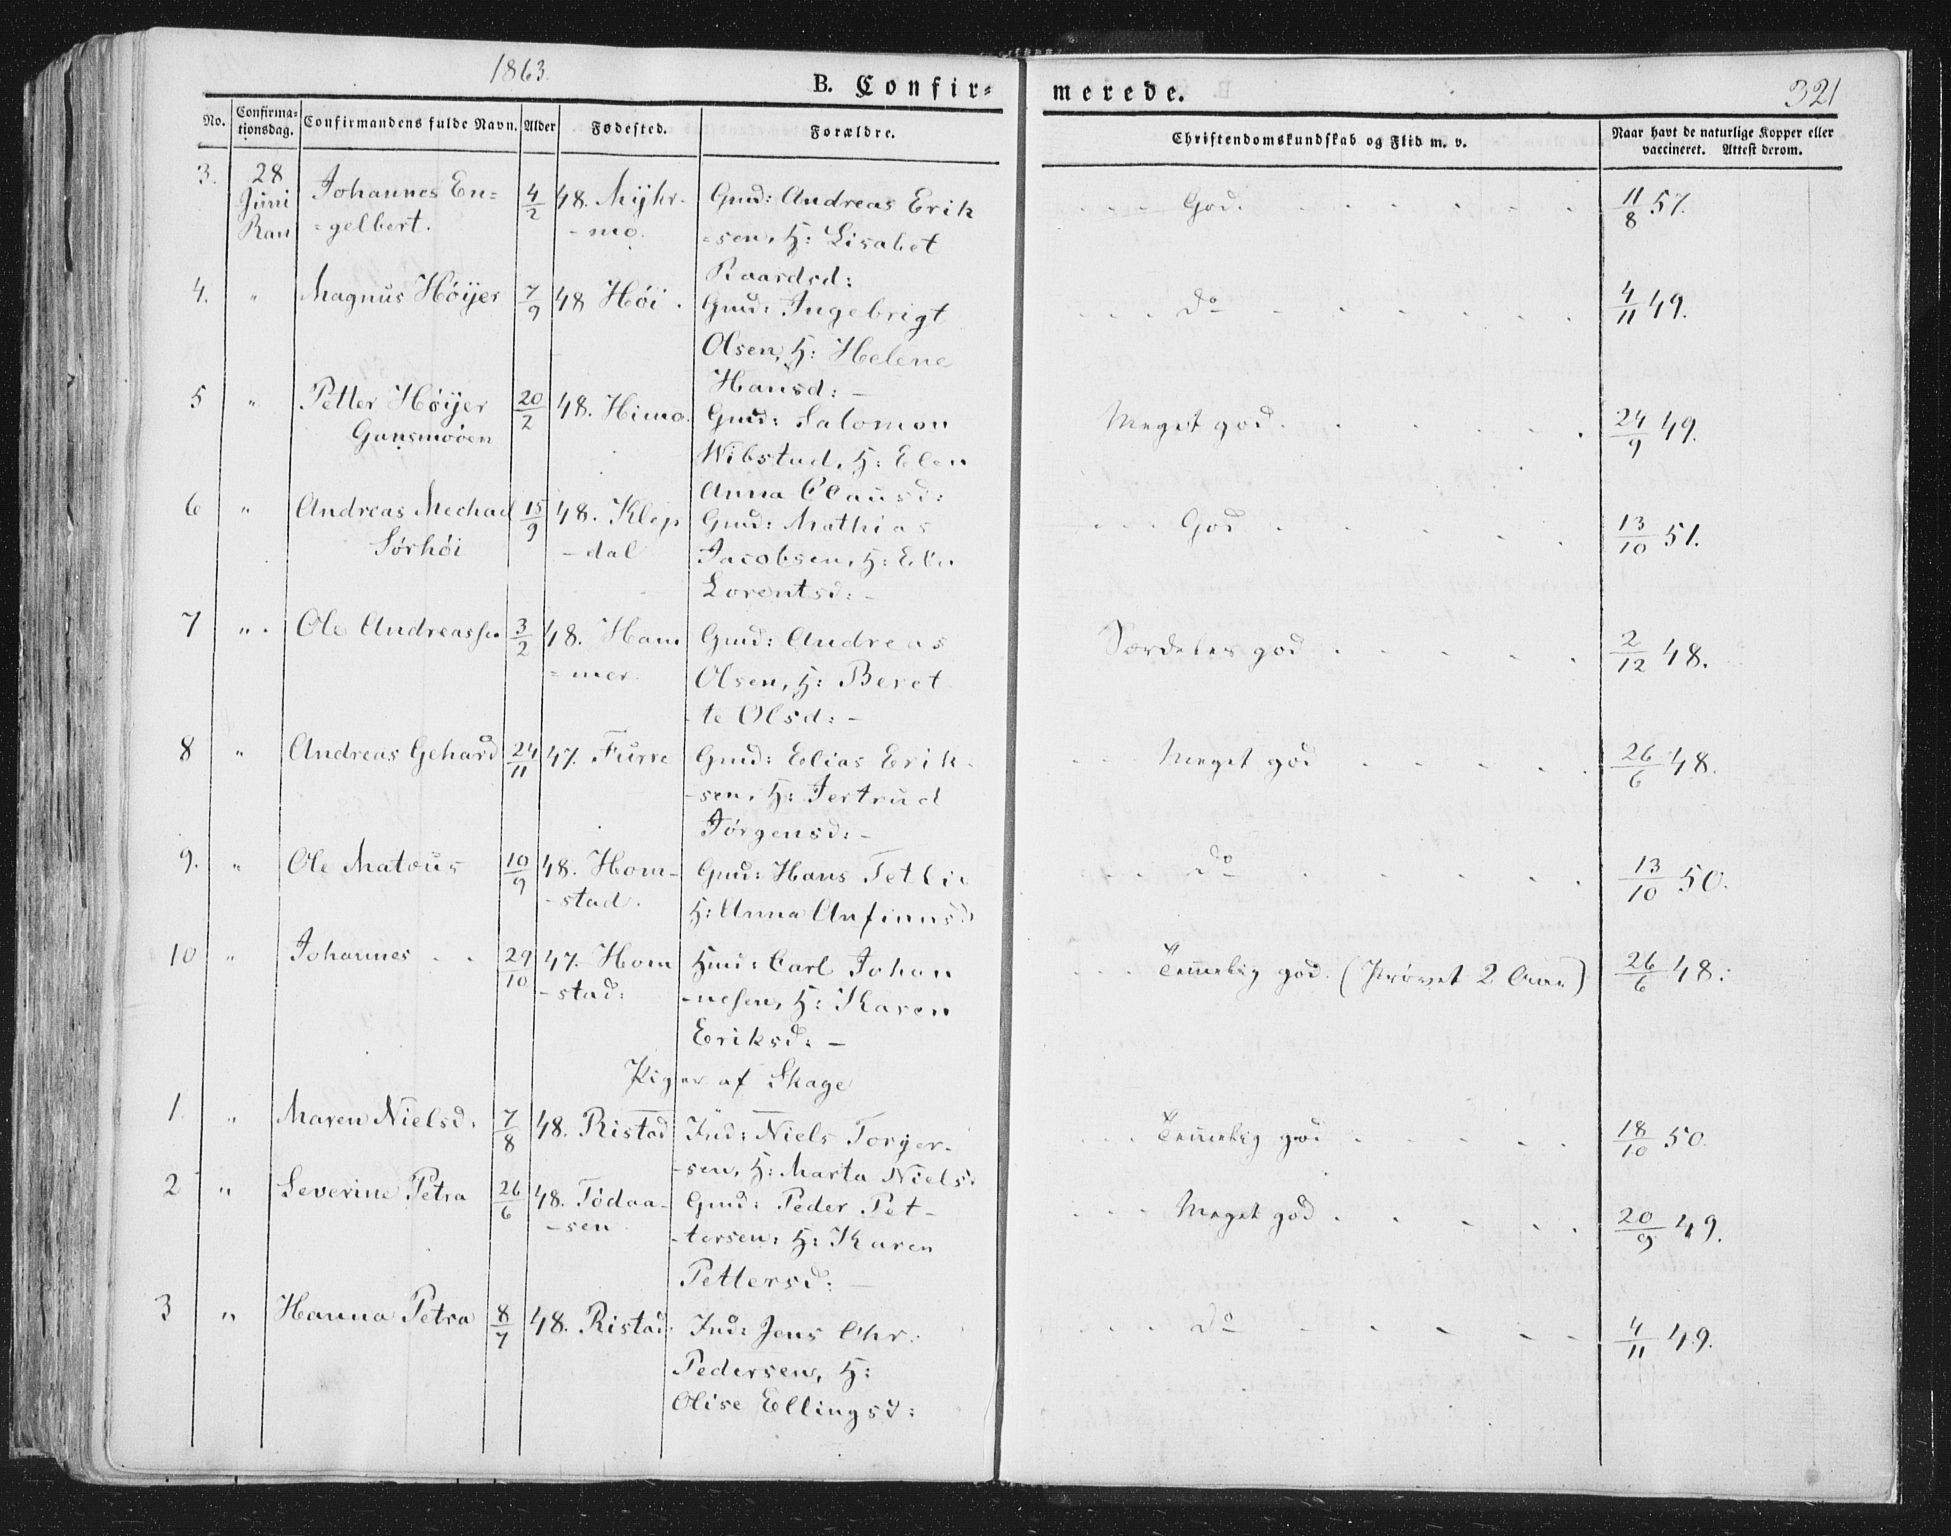 1863.
B. Confir=
merede.
321
No.
Confirma=
tionsdag.
Confirmandens fulde Navn.
Alder
Fødested.
Forældre.
Christendomskundskab og Flid m. v.
Naar havt de naturlige Kopper eller
vaccineret. Attest derom.
3. 28 Johannes En= 4/2 48. Myhr- Gmd: Andreas Erik God. 11/8 57.
Juni =gelbert. -mo. =sen, H: Lisabet
Ran Roardsd:
4. " Magnus Höijer 7/9 48 Höi. Gmd: Ingebrigt do 4/11 49.
Olsen, H: Helene
Hansd: -
5 " Petter Höijer 20/2 48. Himo. Gmd: Salomon Meget god. 24/9 49.
Gansmoöen Wibstad, H: Elen
Anna Clausd:
6 " Andreas Mechael 15/9 48. Klep Gmd: Mathias God 13/10 51.
Sørhöi -dal Jacobsen, H: Elen
Lorentsd: -
7 " Ole Andreassen 3/2 48. Ham Gmd: Andreas Særdeles god 2/12 48.
=mer. Olsen, H: Beret
-te Olsd: -
8 " Andreas Gehard 24/11 47. Furre Gmd: Elias Erik- Meget god 26/6 48.
-sen, H: Jertrud
Jörgensd: -
9. " Ole Mataus 10/9 48. Hom- Gmd: Hans Tetlie do 13/10 50.
-stad. H: Anna Anfinnsd
10 " Johannes 29/10 47. Hom Hmd: Carl Johan Temmelig god. (Prøvet 2 Aar) 26/6 48.
-stad: -nesen, H: Karen
Eriksd: -
Piger af Skage
1. " Maren Nielsd. 7/8 48. Ristad Ind: Niels Torger- Temmelig god 18/10 50.
-sen, H: Marta Niels.
2 " Severine Petra 26/6 48. Tödaa- Gmd: Peder Pet- Meget god 20/9 49.
-sen -tersen: H: Karen
Pettersd: -
3 " Hanna Petra 8/7 48. Ristad. Ind: Jens Chr. do 4/11 49.
Pedersen, H:
Olise Ellingsd: